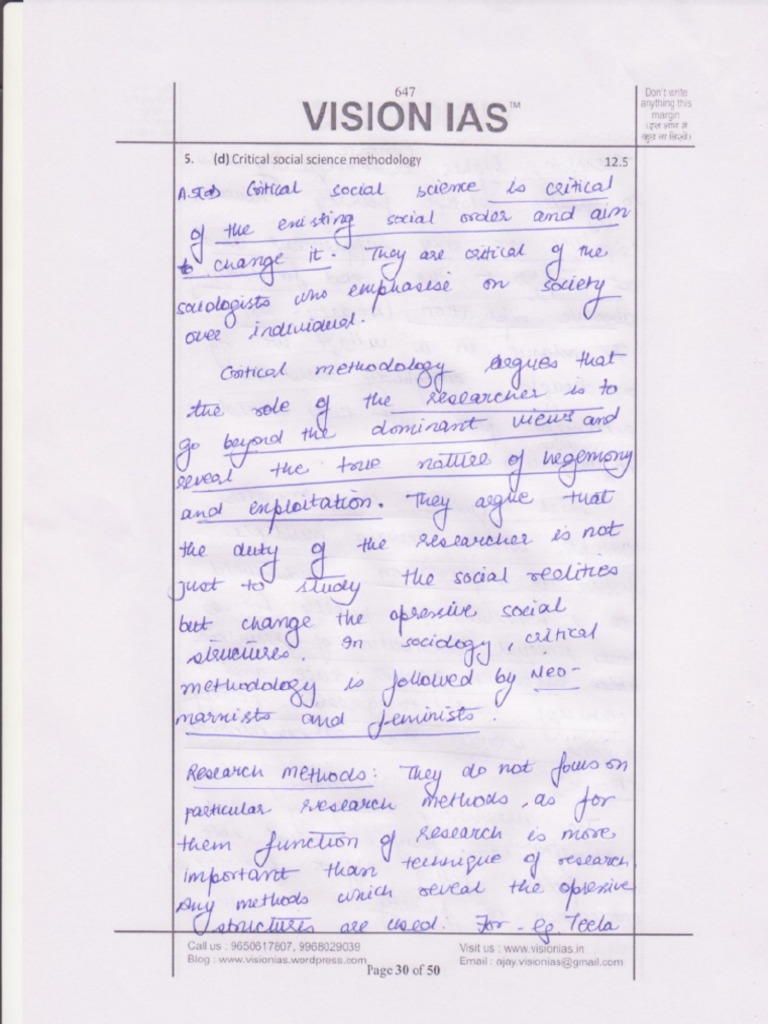 647
VISION IAS™
Don't write
anything this
margin
5. (d) Critical social science methodology 12.5
A.5(d) Critical social science is critical
of the existing social order and aim
to change it. They are critical of the
sociologists who emphasise on society
over individual.
Critical methodology argues that
the role of the researcher is to
go beyond the dominant views and
reveal the true nature of hegemony
and exploitation. They argue that
the duty of the researcher is not
just to study the social realities
but change the opressive social
structures. In sociology, critical
methodology is followed by Neo-
marxists and feminists.
Research methods: They do not focus on
particular research methods, as for
them function of research is more
important than technique of research.
Any methods which reveal the opressive
structures are used. For eg. Teela
Call us : 9650617807, 9968029039 Visit us : www.visionias.in
Blog : www.visionias.wordpress.com Email : ajay.visionias@gmail.com
Page 30 of 50